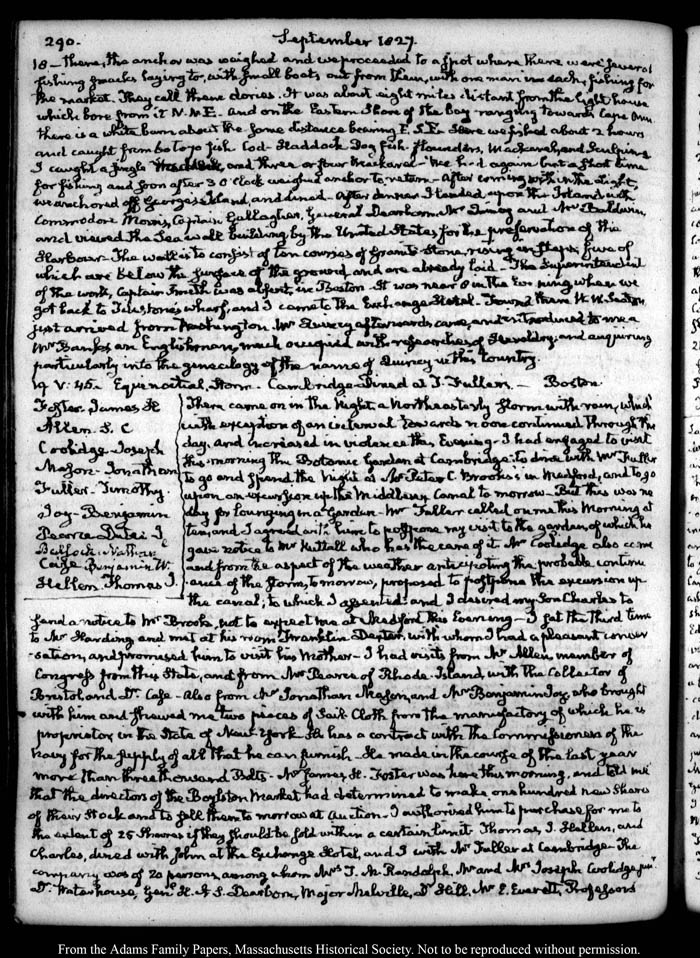 290.
September 1827.
18 – there, the anchor was weighed and we proceeded to a spot where there were several
fishing smacks laying to, with small boats out from them, with one man in each, fishing for
the market. They call these dories. It was about eight miles distant from the light house
which bore from it N.W.E. and on the Eastern Shore of the bay ranging towards Cape Ann
there is a white barn about the same distance bearing E.S.E. Here we fished about 2 hours
and caught from 60 to 70 fish Cod - Haddock Dog fish - Flounders, Mackarel, and Sculpins.
I caught a single Haddock, and three or four Mackarel - We had again but a short time
for fishing and soon after 3 O'Clock weighed anchor to return - After coming within the light,
we anchored off George's Island, and dined - After dinner I landed upon the Island with
Commodore Morris, Captain Gallagher, General Dearborn, Mr Quincy and Mr Baldwin,
and viewed the Sea wall building by the United States for the preservation of the
Harbour - The wall is to consist of ten courses of granite Stone, rising in steps, five of
which are below the surface of the ground and are already laid - The Superintendent
of the work, Captain Smith was absent, in Boston - It was near 8 in the Evening when we
got back to wharf, and I came to the Exchange Hotel - found there W. W. Seaton
just arrived from Washington - Mr Quincy afterwards came, and introduced to me a
Mr Banks, an Englishman, much occupied with researches of Heraldry, and enquiring
particularly into the genealogy of the name of Quincy in this Country.
19. V: 45. Equinoctial, Storm - Cambridge - Dined at T. Fuller's - Boston.
Foster, James H
Allen. S. C
Coolidge - Joseph
Mason - Jonathan
Fuller - Timothy.
Joy - Benjamin
Pearce Dutee J.
Benjamin W.
Hellen Thomas J.
There came on in the Night a Northeasterly storm with rain, which
with exception of an interval towards noon continued through the
day, and increased in violence this Evening - I had engaged to visit
this morning the Botanic Garden at Cambridge - to dine with Mr Fuller
to go and spend the Night at Mr Peter C. Brooks's in Medford, and to go
upon an excursion up the Middlesex Canal to morrow - But this was no
day for lounging in a Garden - Mr Fuller called on me this Morning at
ten, and I agreed with him to postpone my visit to the garden of which he
gave notice to Mr Nuttall who has the care of it. Mr Coolidge also came
and from the aspect of the weather anticipating the probable continu-
ance of the Storm, to morrow, proposed to postpone the excursion up
the canal; to which I assented - and I desired my Son Charles to
send a notice to Mr Brooks, not to expect me at Medford this Evening - I sat the third time
to Mr Harding and met at his room Franklin Dexter, with whom I had a pleasant conver
-sation, and promised him to visit his Mother - I had visits from Mr Allen, member of
Congress from this State, and from Mr Pearce of Rhode-Island, with the Collector of
Bristol and Dr. Case - Also from Mr Jonathan Mason, and Mr Benjamin Joy, who brought
with him and shewed me two pieces of Sail-Cloth from the manufactory of which he is
proprietor, in the State of New-York. He has a contract with the Commissioners of the
Navy for the supply of all that he can furnish - He made in the course of the last year
more than three thousand Bolts - Mr James H. Foster was here this morning, and told me
that the directors of the Boylston Market had determined to make one hundred new Shares
of their Stock and to sell them to morrow at Auction - I authorised him to purchase for me to
the extent of 25 Shares if they should be sold within a certain limit - Thomas, J. Hellen, and
Charles, dined with John at the Exchange Hotel, and I with Mr Fuller at Cambridge - The
company was of 20 persons, among whom Mrs T. M. Randolph, Mr and Mrs Joseph Coolidge junr
Dr. Waterhouse, Genl H. A. S. Dearborn, Major Melville, Dr Hill, Mr E. Everett, Professors
From the Adams Family Papers, Massachusetts Historical Society. Not to be reproduced without permission.